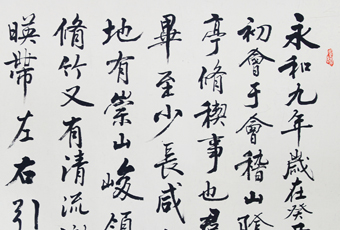 永和九年歲在癸丑
初會于會稽山陰
亭脩稧事也羣
畢至少長咸
地有崇山峻領
脩竹又有清流激
暎帶左右引